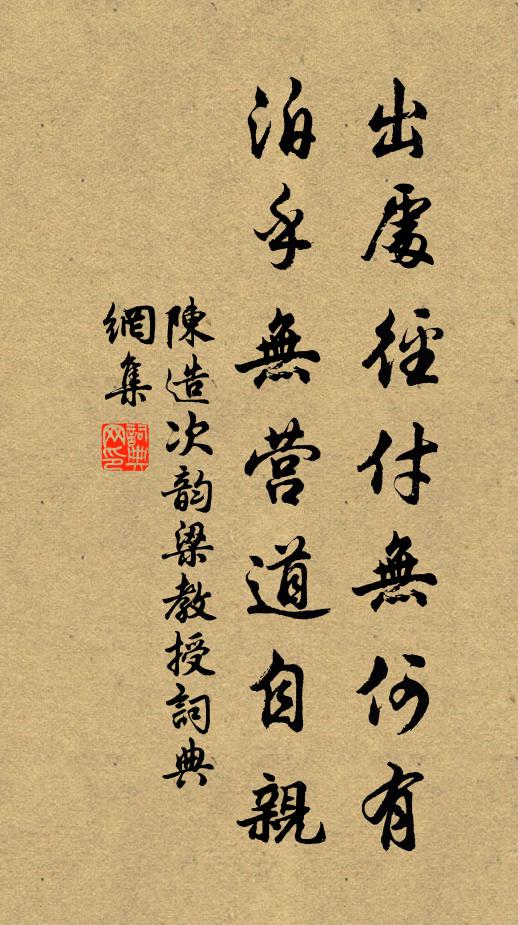 出處徑付無何有
泊乎無營道自親
陳造次韵梁教授詞典
網集
詞典網印